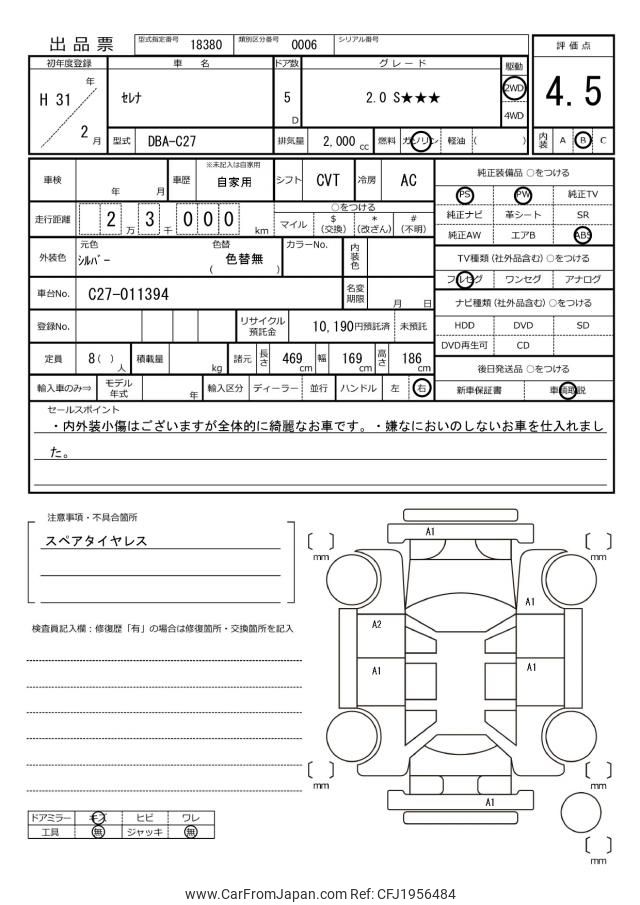 出品票 型式指定番号 18380 類別区分番号 0006 シリアル番号
評価点
4.5
内装 A B C
初年度登録 車名 ドア数 グレード 駆動
H 31 年 2 月
セレナ 5 D 2.0 S★★★ 2WD 4WD
型式 DBA-C27 排気量 2,000 cc 燃料 ガソリン 軽油 ( )
車検 年 月 車歴 ※未記入は自家用 自家用 シフト CVT 冷房 AC
走行距離 2 万 3 千 0 0 0 km
○をつける
マイル $ (交換) * (改ざん) # (不明)
外装色 元色 シルバー 色替 ( 色替無 ) カラーNo. 内装色
車台No. C27-011394 名変期限 月 日
登録No. リサイクル預託金 10,190円預託済 未預託
定員 8( ) 人 積載量 kg 諸元 長さ 469 cm 幅 169 cm 高さ 186 cm
輸入車のみ⇒ モデル年式 年 輸入区分 ディーラー 並行 ハンドル 左 右
純正装備品 ○をつける
PS PW 純正TV
純正ナビ 革シート SR
純正AW エアB ABS
TV種類 (社外品含む) ○をつける
フルセグ ワンセグ アナログ
ナビ種類 (社外品含む) ○をつける
HDD DVD SD
DVD再生可 CD
後日発送品 ○をつける
新車保証書 車輌取説
セールスポイント
・内外装小傷はございますが全体的に綺麗なお車です。・嫌なにおいのしないお車を仕入れまし
た。
注意事項・不具合箇所
スペアタイヤレス
検査員記入欄:修復歴「有」の場合は修復箇所・交換箇所を記入
ドアミラー キズ ヒビ ワレ
工具 無 ジャッキ 無
A1
mm
mm
A1
A2
A1
A1
mm
mm
A1
mm
www.CarFromJapan.com Ref: CFJ1956484